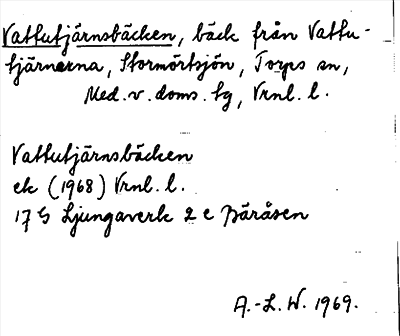 Vattutjärnsbäcken, bäck från Vattu-
tjärnarna, Stormörtsjön, Torps sn,
Med. v. doms. tg, Vrnl. l.
Vattutjärnsbäcken
ek (1968) Vrnl. l.
17 G Ljungaverk 2 e Bäråsen
A.-L. W. 1969.